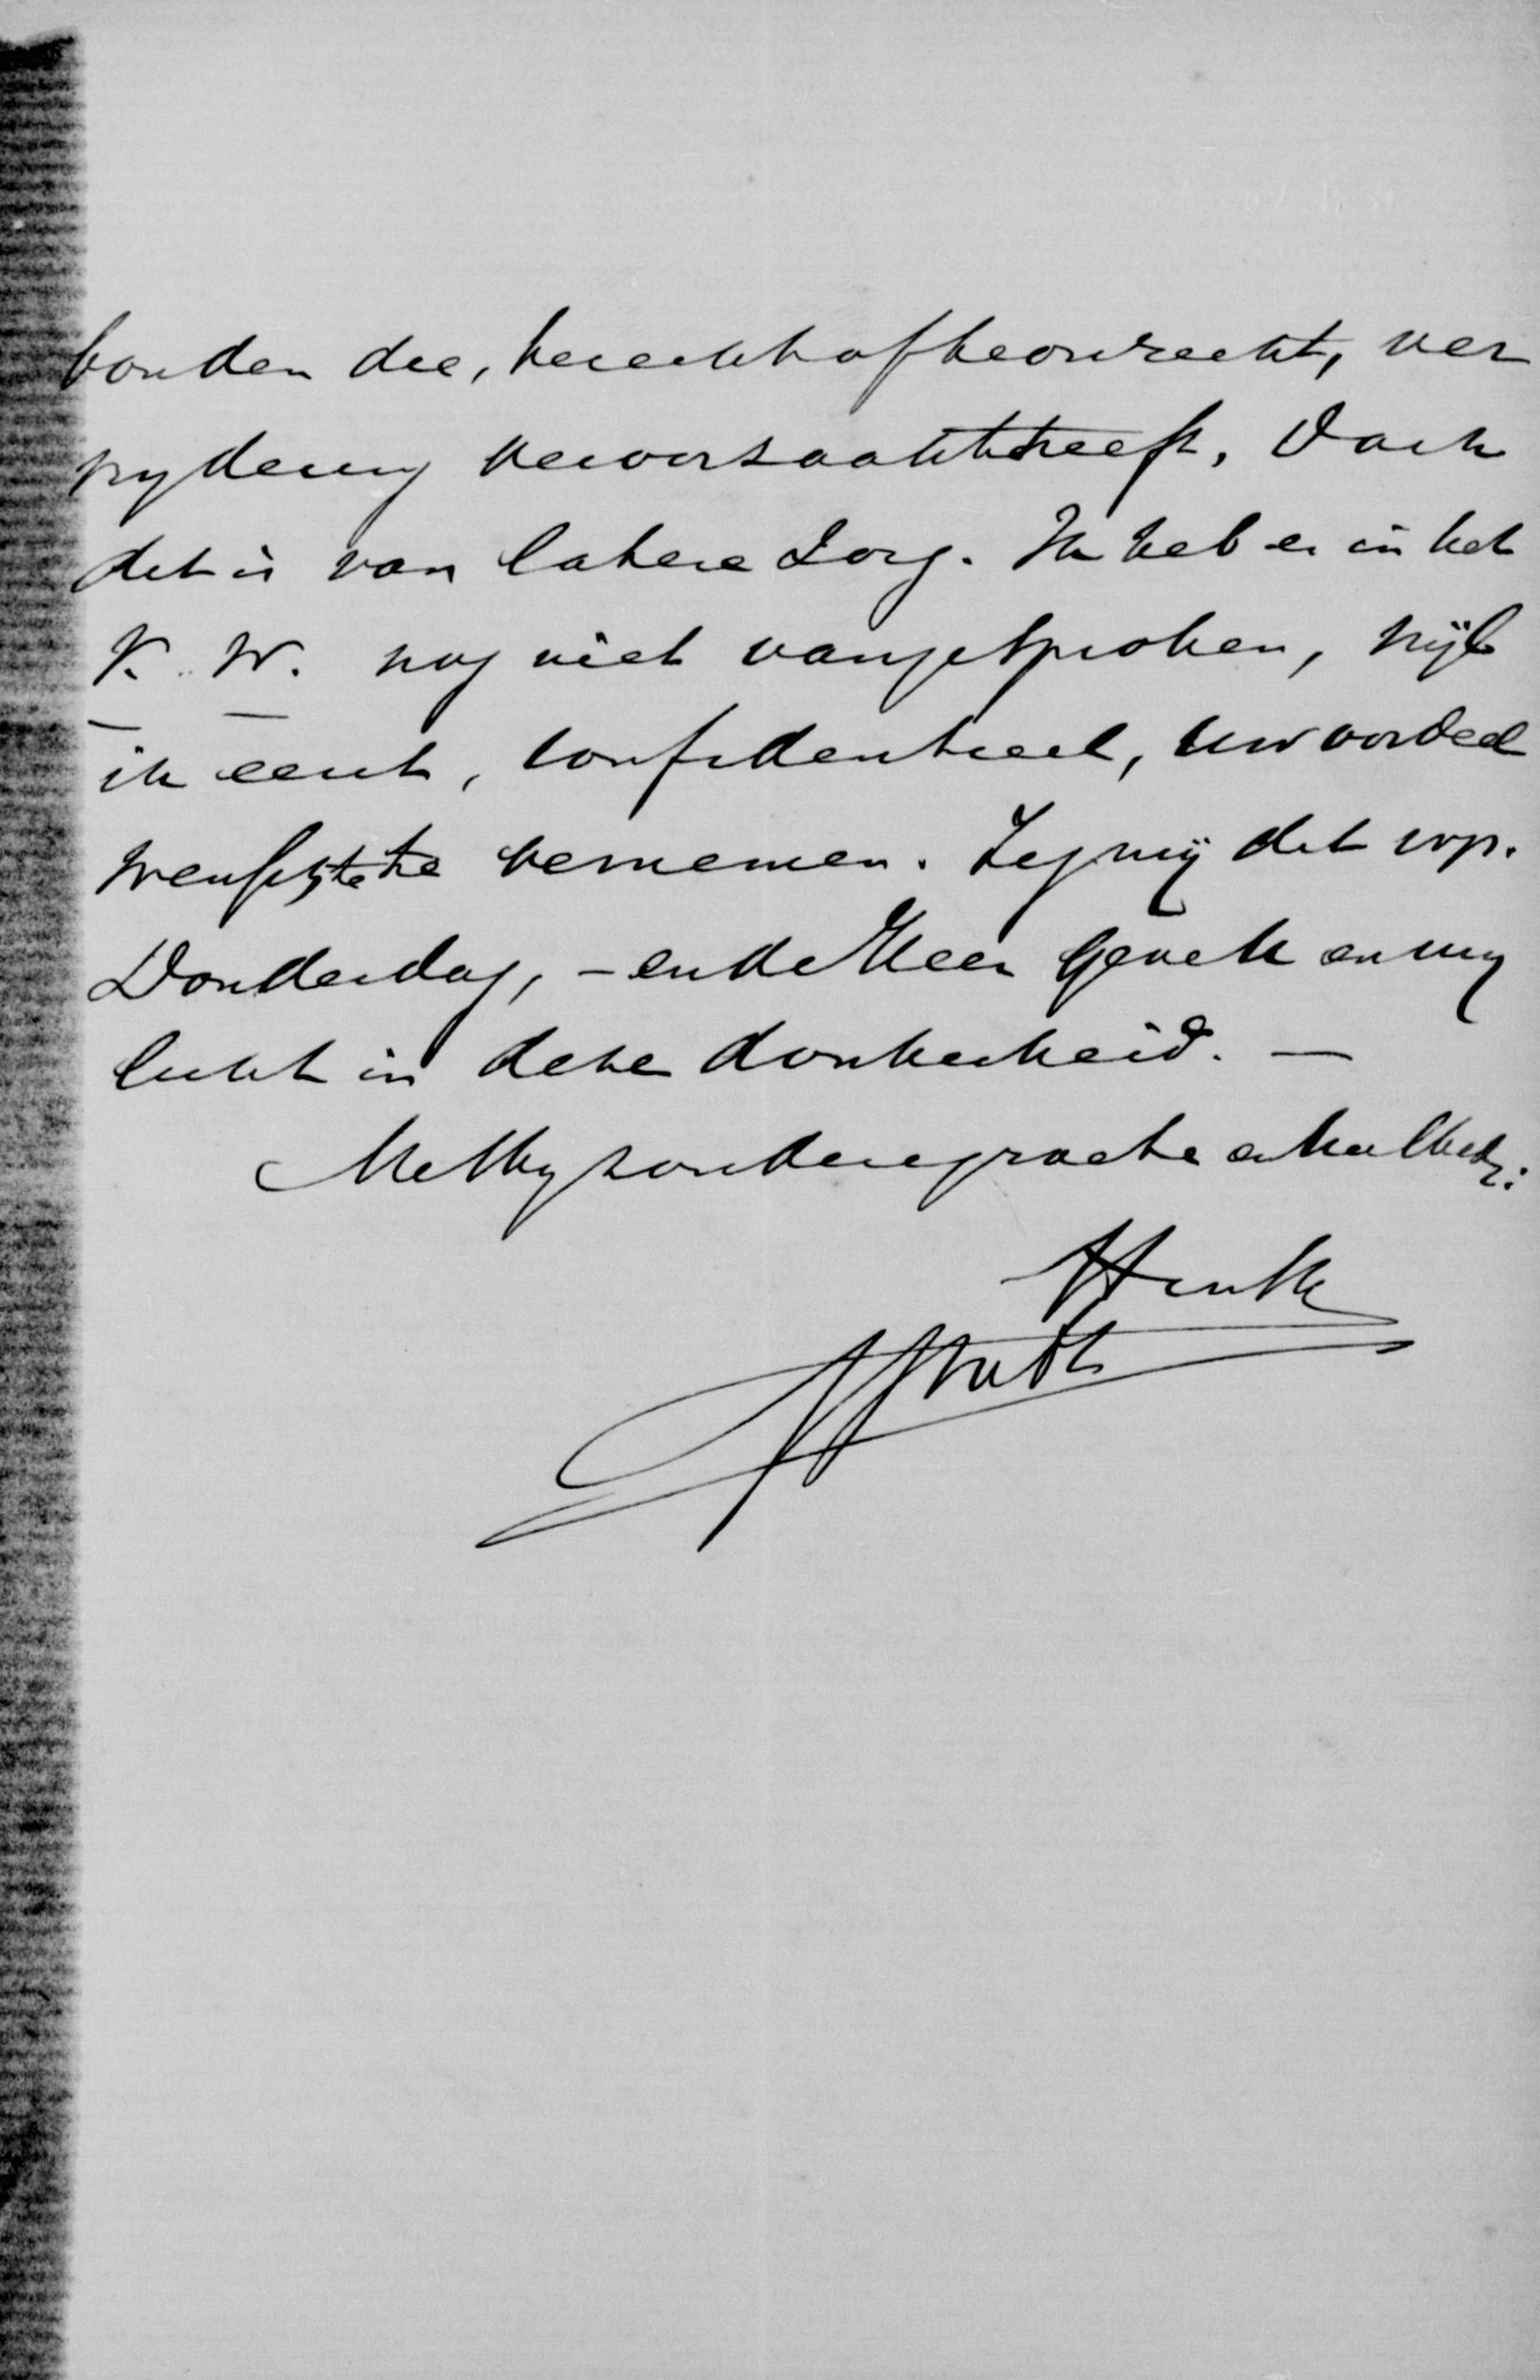 bonden die, terecht of te onrecht, ver
bydering veroorzaakt heeft. Doch
dat is van latere zorg. Ik heb er in het
K. W. nog niet van gesproken, wijl
ik eerst, confidentieel, uw oordeel
wenschte te vernemen. Zeg mij dat svp.
Donderdag, – en de Heer geve U en mij
licht in deze donkerheid. –
Met bijzondere groete en heilbede:
Henk